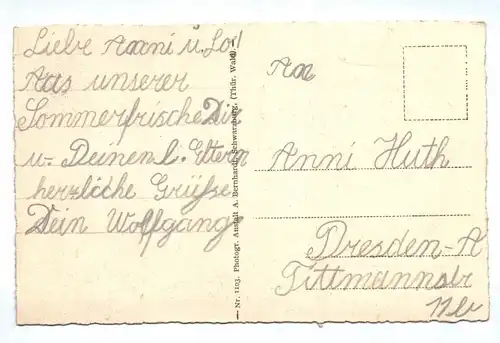 Liebe Anni u. Lo!
Aus unserer
Sommerfrische Dir
u. Deinen l. Eltern
herzliche Grüße
Dein Wolfgang
— Nr. 1103. Photogr. Anstalt A. Bernhardt, Schwarzburg. (Thür. Wald). —
An
Anni Huth
Dresden-A
Tittmannstr